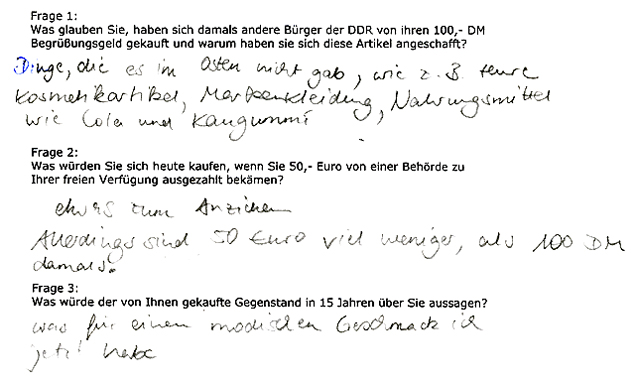 Frage 1:
Was glauben Sie, haben sich damals andere Bürger der DDR von ihren 100,- DM
Begrüßungsgeld gekauft und warum haben sie sich diese Artikel angeschafft?
Dinge, die es im Osten nicht gab, wie z. B. teure
Kosmetikartikel, Markenkleidung, Nahrungsmittel
wie Cola und Kaugummi
Frage 2:
Was würden Sie sich heute kaufen, wenn Sie 50,- Euro von einer Behörde zu
Ihrer freien Verfügung ausgezahlt bekämen?
etwas zum Anziehen
Allerdings sind 50 Euro viel weniger, als 100 DM
damals.
Frage 3:
Was würde der von Ihnen gekaufte Gegenstand in 15 Jahren über Sie aussagen?
was für einen modischen Geschmack ich
jetzt habe